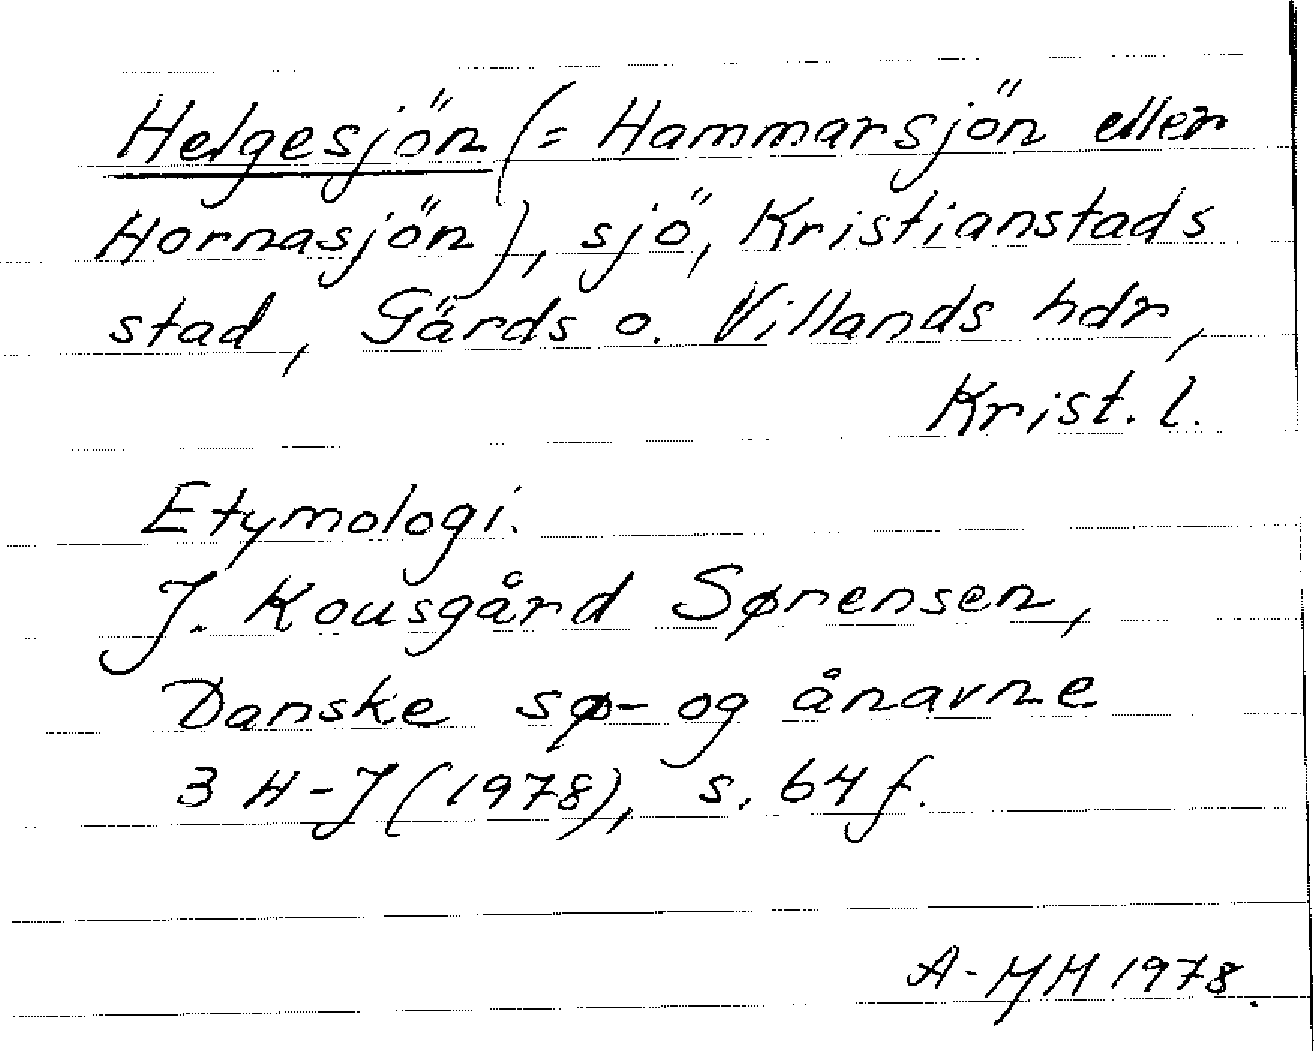 Helgesjön (= Hammarsjön eller
Hornasjön), sjö, Kristianstads
stad, Gärds o. Villands hdr,
Krist. l.
Etymologi.
J. Kousgård Sørensen,
Danske sø- og ånavne
3 H-J (1978), s. 64 f.
A-MH 1978.